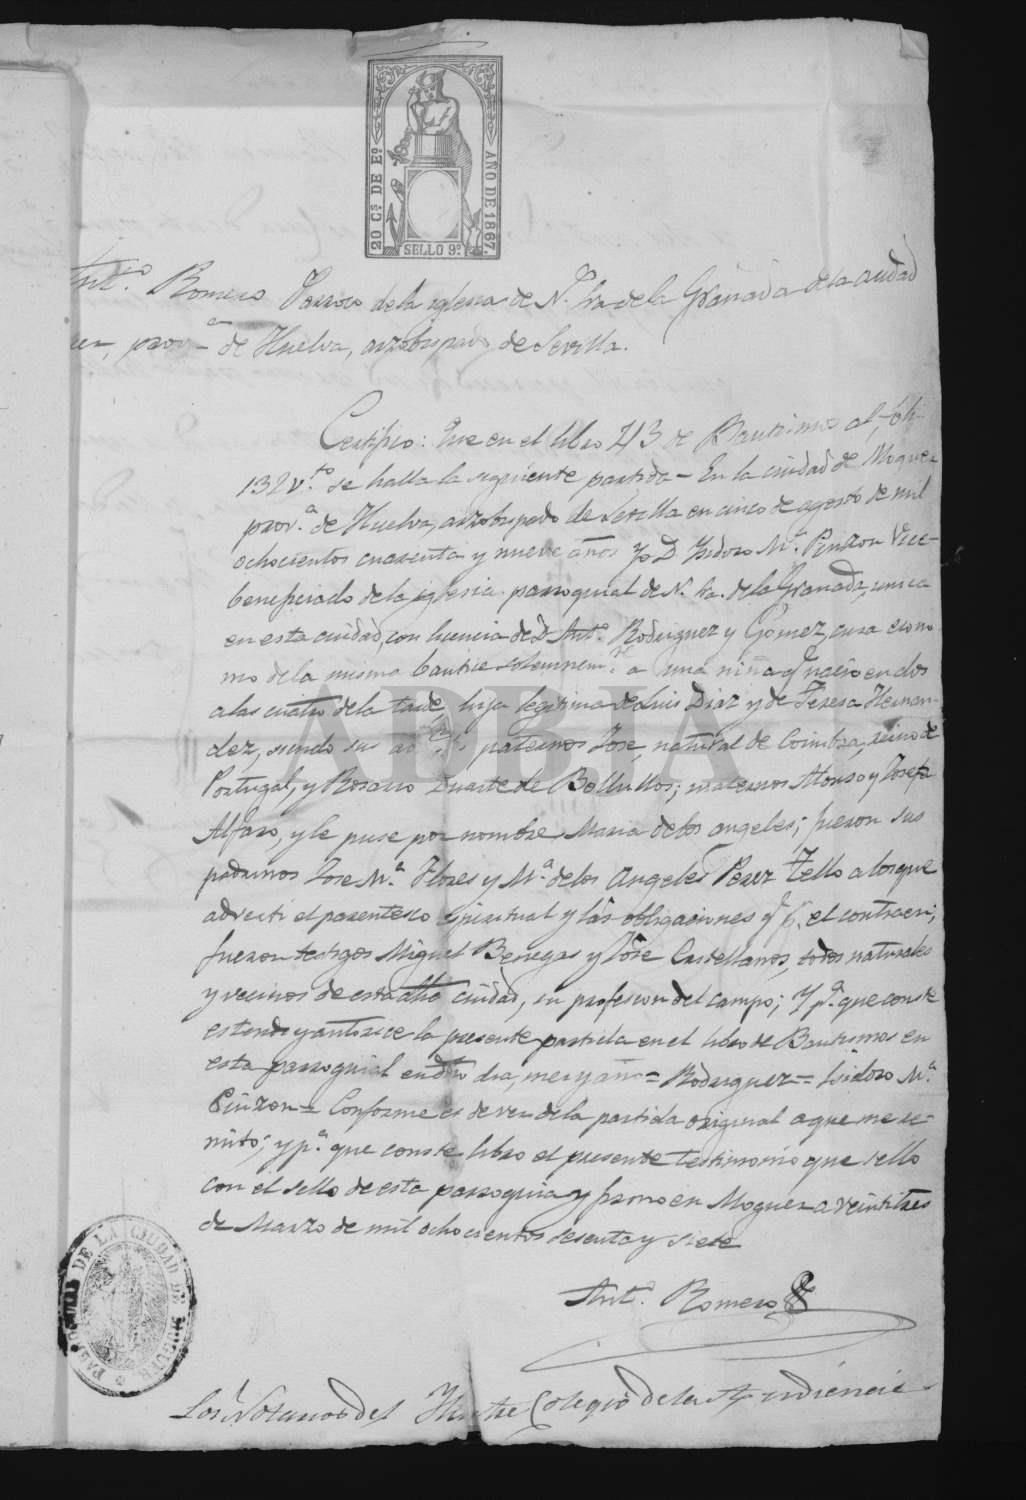 20 Cs DE Eo
AÑO DE 1867.
SELLO 9º
Anto. Romero Parroco de la iglesia de N. Sra de la Granada de la ciudad
uer, prova de Huelva, arzobispado de Sevilla.
Certifico: Que en el libro 43 de Bautismos al foli
132 vto se halla la siguiente partida - En la ciudad de Moguer
prova de Huelva, arzobispado de Sevilla en cinco de agosto de mil
ochocientos cuarenta y nueve años yo D. Ysidoro Ma. Pinzon Vice-
beneficiado de la iglesia parroquial de N. Sra. de la Granada, unica
en esta ciudad, con licencia de D. Anto. Rodriguez y Gómez, cura econo
mo de la misma bautice solemnemte a una niña q nacio en dos
a las cuatro de la tarde, hija legitima de Luis Diaz y de Teresa Hernan-
dez, siendo sus paternos José, natural de Coimbra, reino de
Portugal, y Rosario Duarte de Bollullos; maternos Alonso y Josefa
Alfaro, y le puse por nombre Maria de los angeles; fueron sus
padrinos Jose Ma. Flores y Ma. de los Angeles Perez Tello a los que
adverti el parentesco espiritual y las obligaciones q p. el contraen;
fueron testigos Miguel Benegas y José Castellanos, todos naturales
y vecinos de esta dha ciudad, su profesion del campo; Y pa. que conste
estendi y autorice la presente partida en el libro de Bautismos en
esta parroquial en dho dia, mes y año = Rodriguez = Isidoro Ma.
Pinzon = Conforme es de ver de la partida original a que me re-
mito; y pa. que conste libro el presente testimonio que sello
con el sello de esta parroquia y firmo en Moguer a veintitres
de Marzo de mil ochocientos sesenta y siete
Anto. Romero
DE LA CIUDAD DE MOGUER
Los Notarios del Ilustre Colegio de la Audiencia
ADBJA